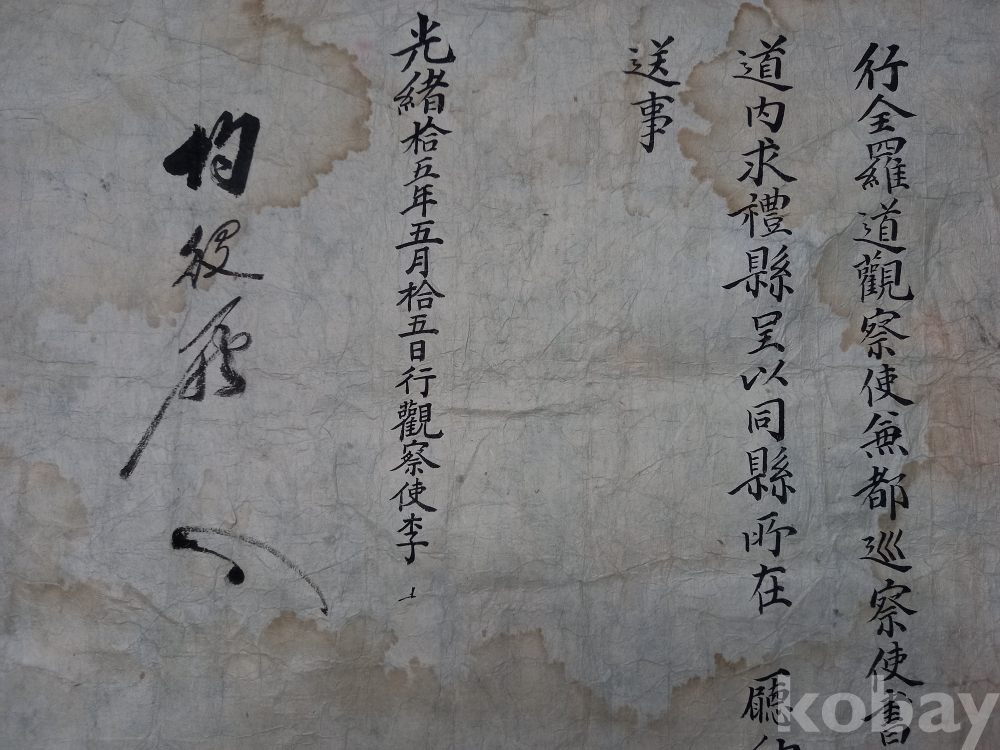 行全羅道觀察使兼都巡察使書
道内求禮縣呈以同縣所在 廳
送事
光緖拾五年五月拾五日行觀察使李
均役廳
kobay